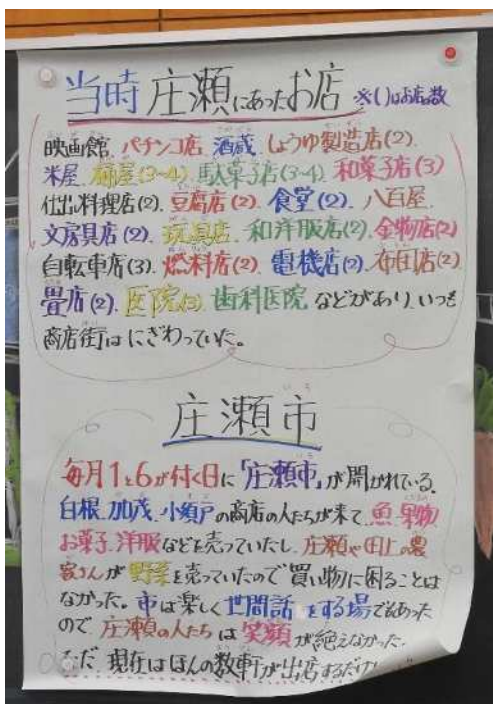 当時 庄瀬にあったお店 ※( )はお店の数
映画館、パチンコ店、酒蔵、しょうゆ製造店(2)、
米屋、桶屋(3~4)、駄菓子店(3~4)、和菓子店(3)
仕出し料理店(2)、豆腐店(2)、食堂(2)、八百屋、
文房具店(2)、玩具店、和洋服店(2)、金物店(2)
自転車店(3)、燃料店(2)、電機店(2)、布団店(2)、
畳店(2)、医院(2)、歯科医院などがあり、いつも
商店街はにぎわっていた。
庄瀬市
毎月1と6が付く日に「庄瀬市」が開かれている。
白根、加茂、小須戸の商店の人たちが来て、魚、果物、
お菓子、洋服などを売っていたし、庄瀬や田上の農
家さんが野菜を売っていたので買い物に困ることは
なかった。市は楽しく世間話をする場でもあった
ので庄瀬の人たちは笑顔が絶えなかった。
ただ、現在はほんの数軒が出店するだけ